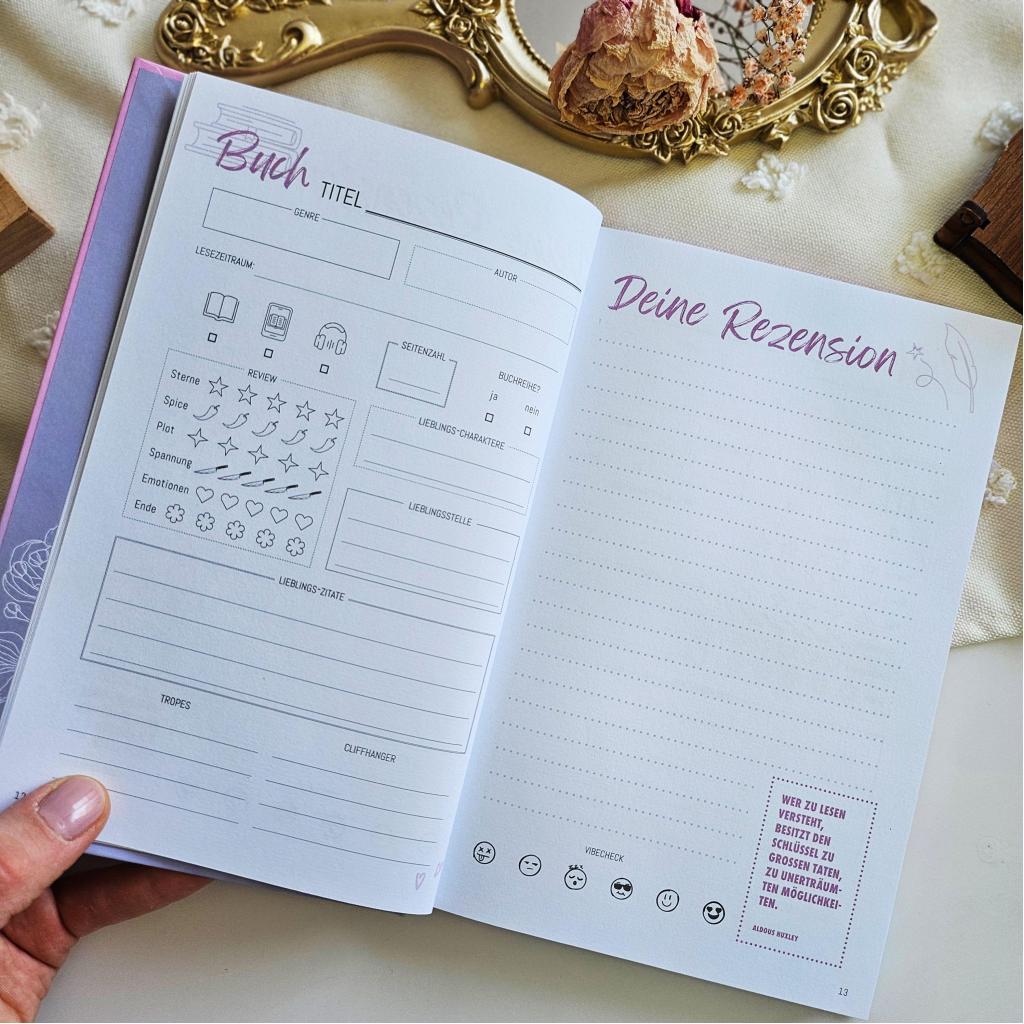 Buch TITEL
GENRE
AUTOR
LESEZEITRAUM:
SEITENZAHL
BUCHREIHE?
ja nein
REVIEW
Sterne
Spice
Plot
Spannung
Emotionen
Ende
LIEBLINGS-CHARAKTERE
LIEBLINGSSTELLE
LIEBLINGS-ZITATE
TROPES
CLIFFHANGER
12
Deine Rezension
VIBECHECK
WER ZU LESEN
VERSTEHT,
BESITZT DEN
SCHLÜSSEL ZU
GROSSEN TATEN,
ZU UNERTRÄUM-
TEN MÖGLICHKEI-
TEN.
ALDOUS HUXLEY
13